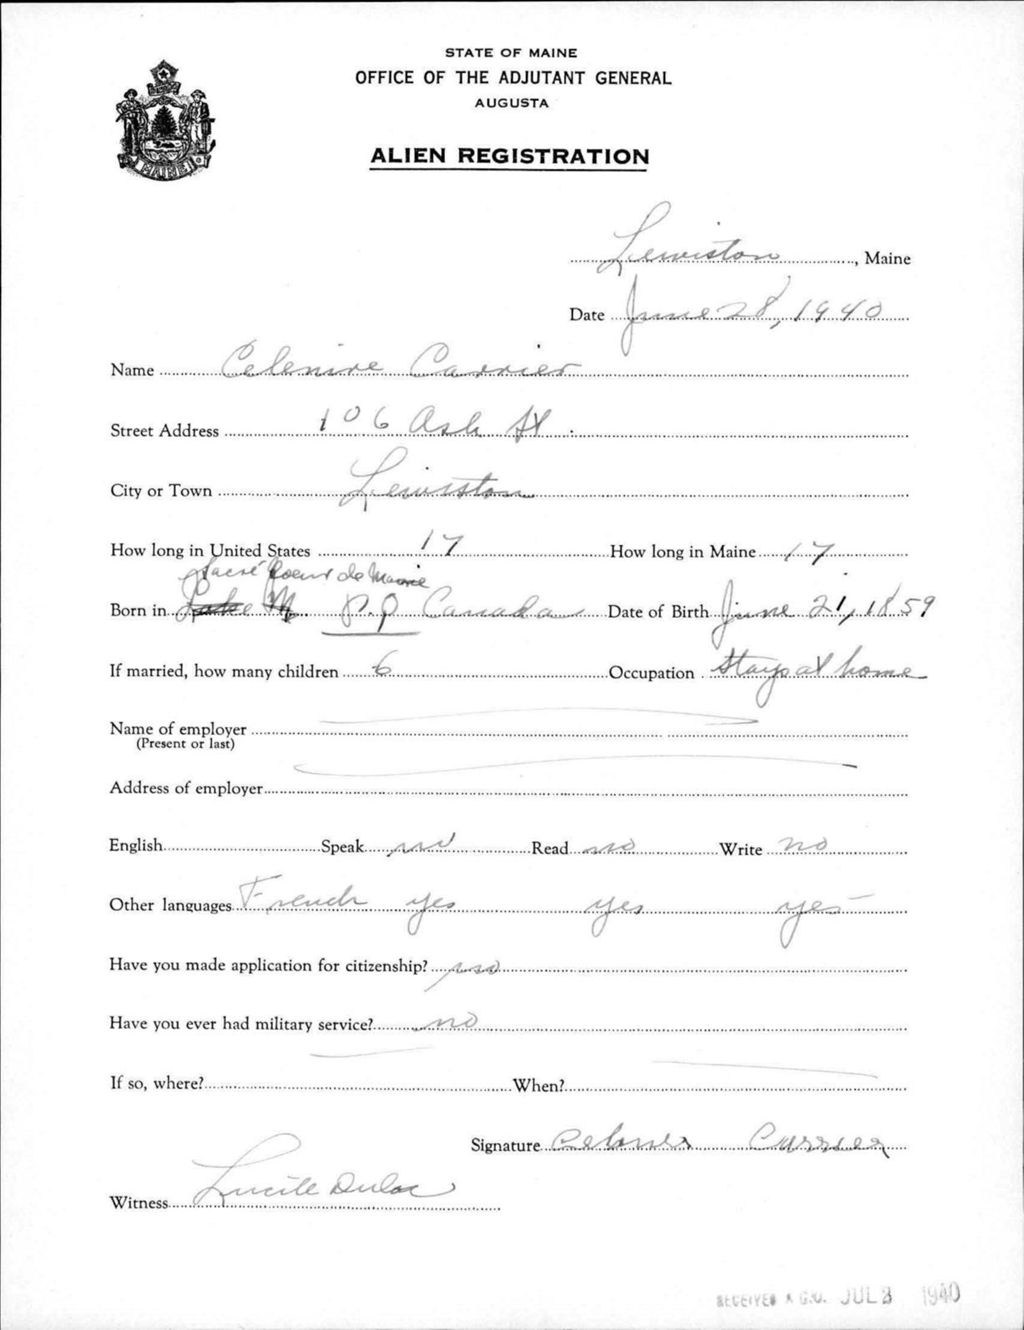 STATE OF MAINE
OFFICE OF THE ADJUTANT GENERAL
AUGUSTA
ALIEN REGISTRATION
MAINE
Lewiston, Maine
Date June 28, 1940
Name Celenire Carrier
Street Address 106 Ash St.
City or Town Lewiston
How long in United States 17 How long in Maine 17
Sacré Coeur de Marie
Born in P.Q Canada Date of Birth June 21, 1859
If married, how many children 6 Occupation Stays at home
Name of employer
(Present or last)
Address of employer
English Speak no Read no Write no
Other languages French yes yes yes
Have you made application for citizenship? no
Have you ever had military service? no
If so, where? When?
Signature Carrier
Witness Lucille Dulac
RECEIVED A.G.O. JUL 2 1940